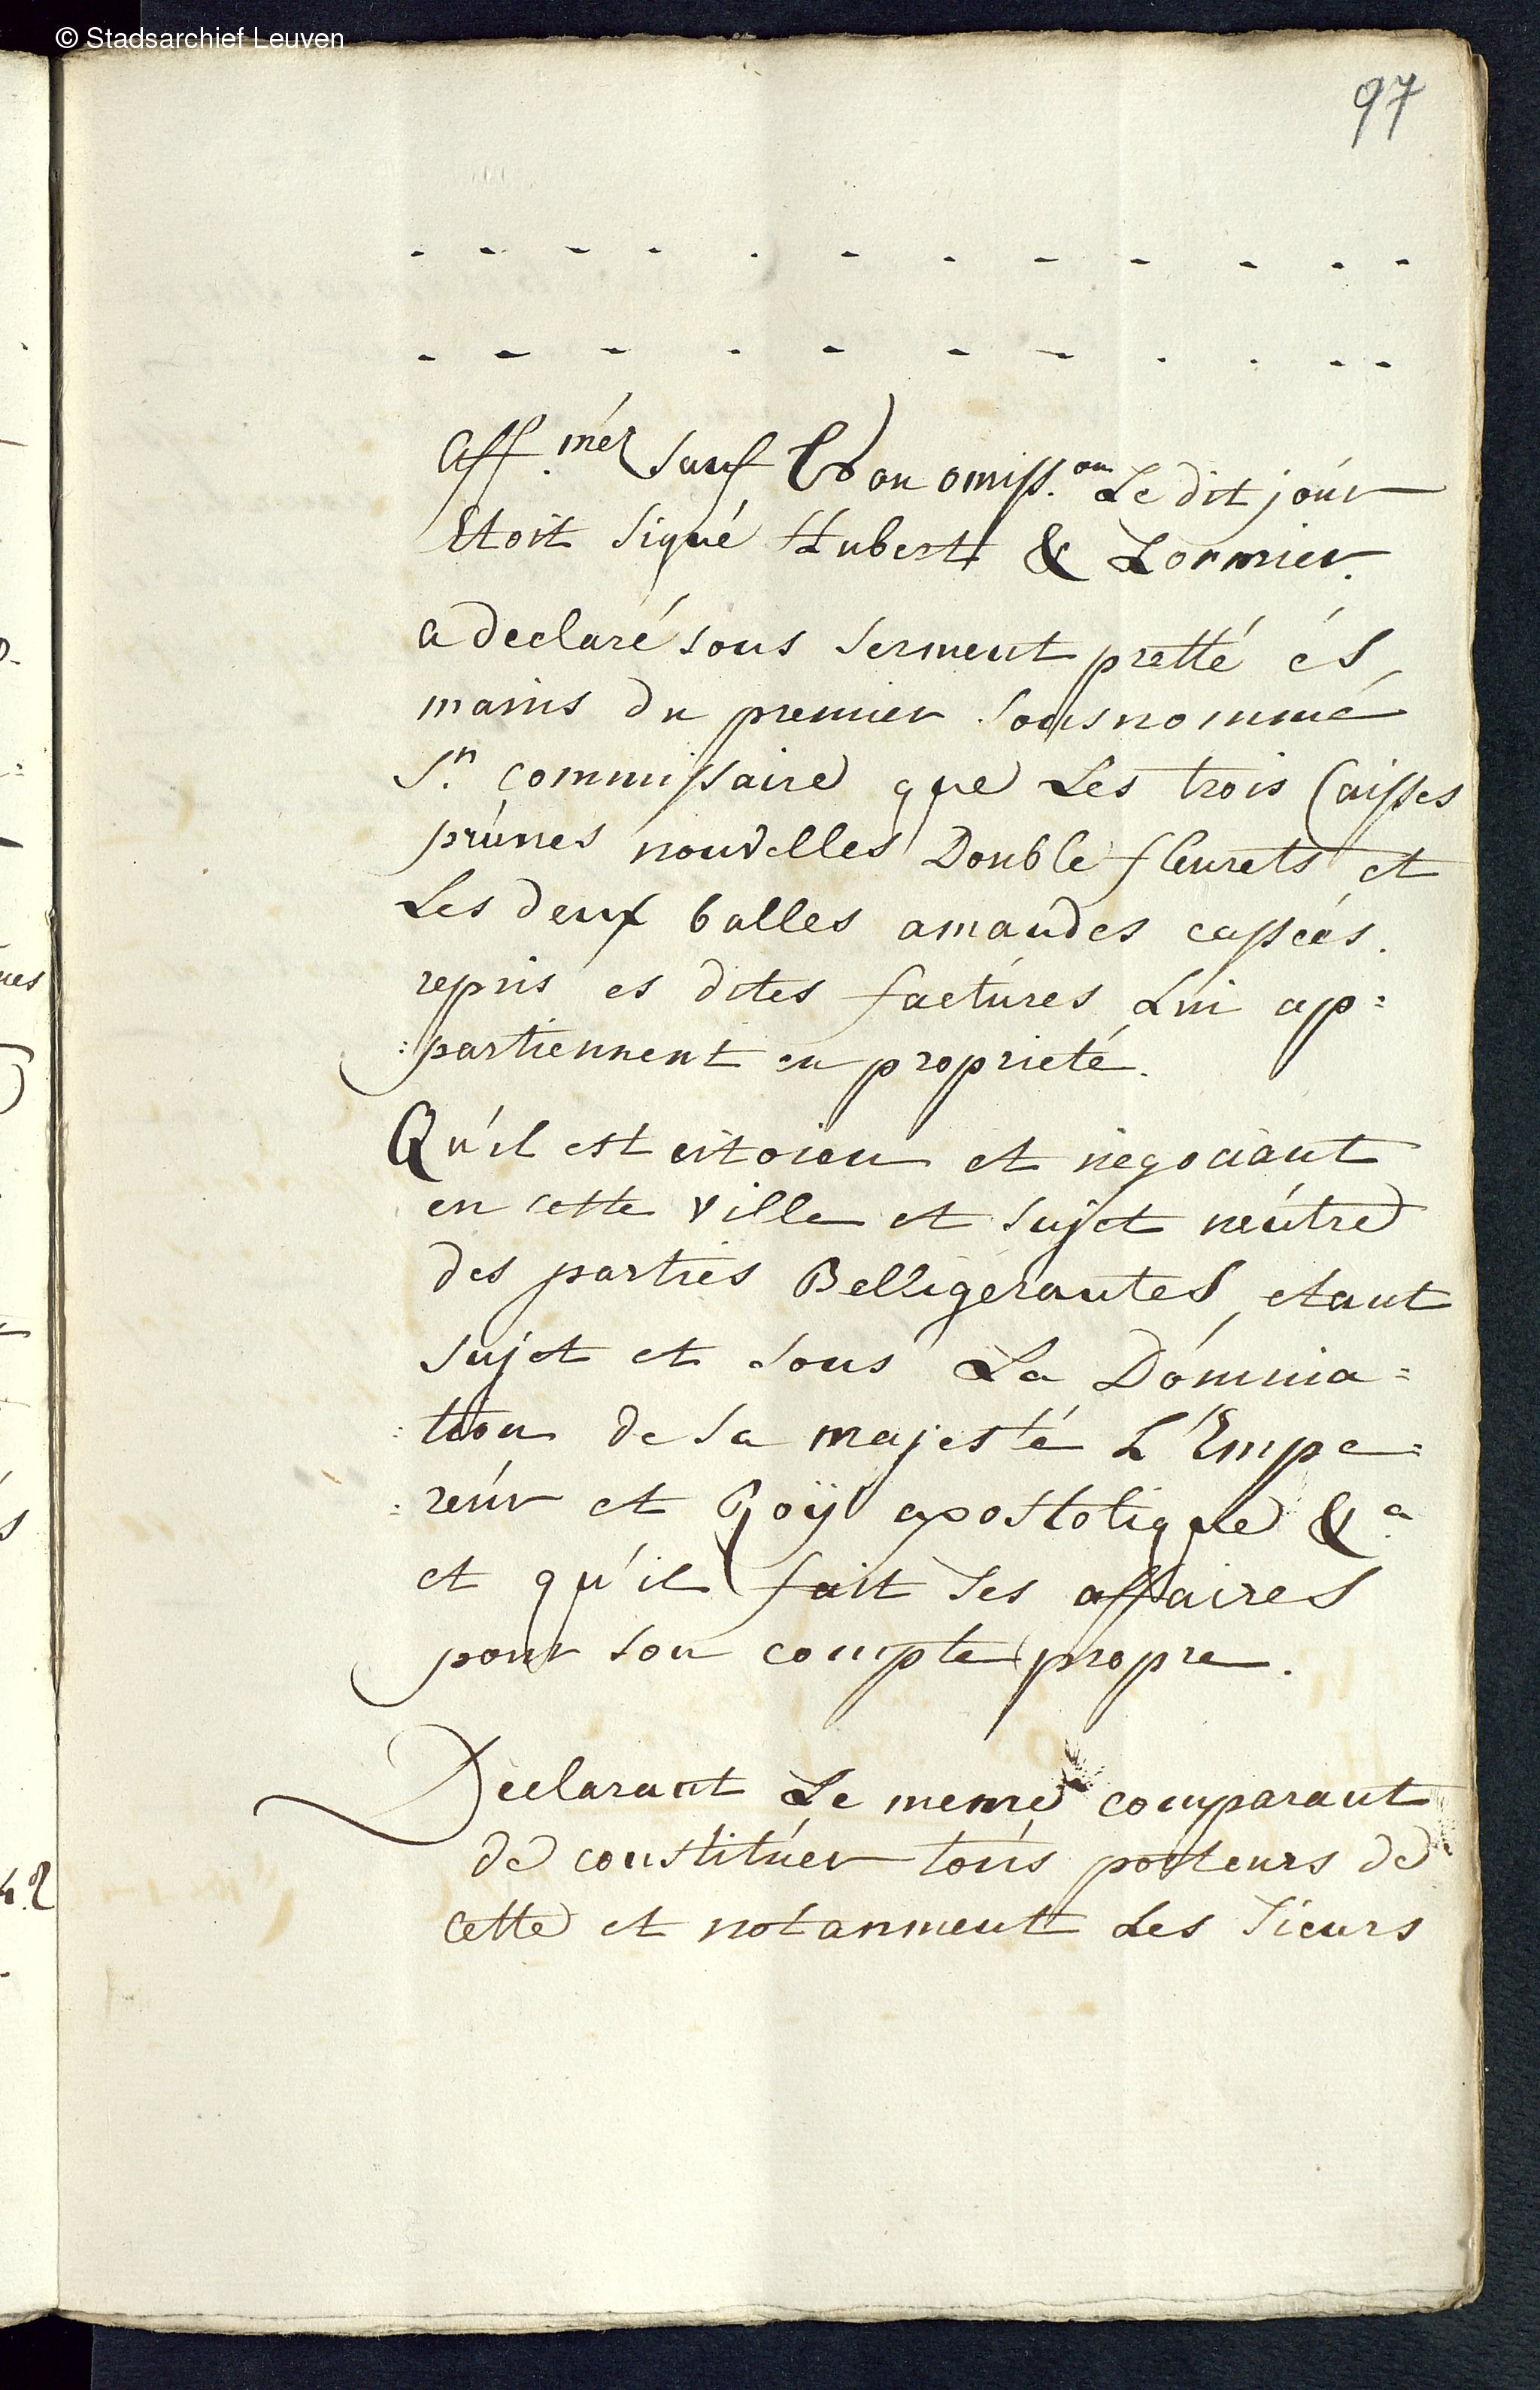 © Stadsarchief Leuven
97
- - - - - - - - - - - -
- - - - - - - - - - -
Aff.mez sauf Er ou omiss.on Le dit joúr
Etoit Signé Hubert & Lormier.
a declaré sous serment pretté és
mains du premier sousnommé
Sr. commissaire que Les trois Caisses
prúnes nouvelles Double fleurets et
Les deux balles amaúdes cassées.
repris es dites factúres Lui ap=
:partiennent en proprieté.
Qu'il est citoien et négociant
en cette ville et sujet neútre
des parties Belligerantes, etant
sujet et sous La Domina=
:tion de sa majesté L'Empe=
:reúr et Roÿ apostolique &a.
et qu'il fait ses affaires
pour son compte propre.
Declarant Le meme comparant
de constitúer toús porteurs de
cette et notanment Les Sieurs
ues